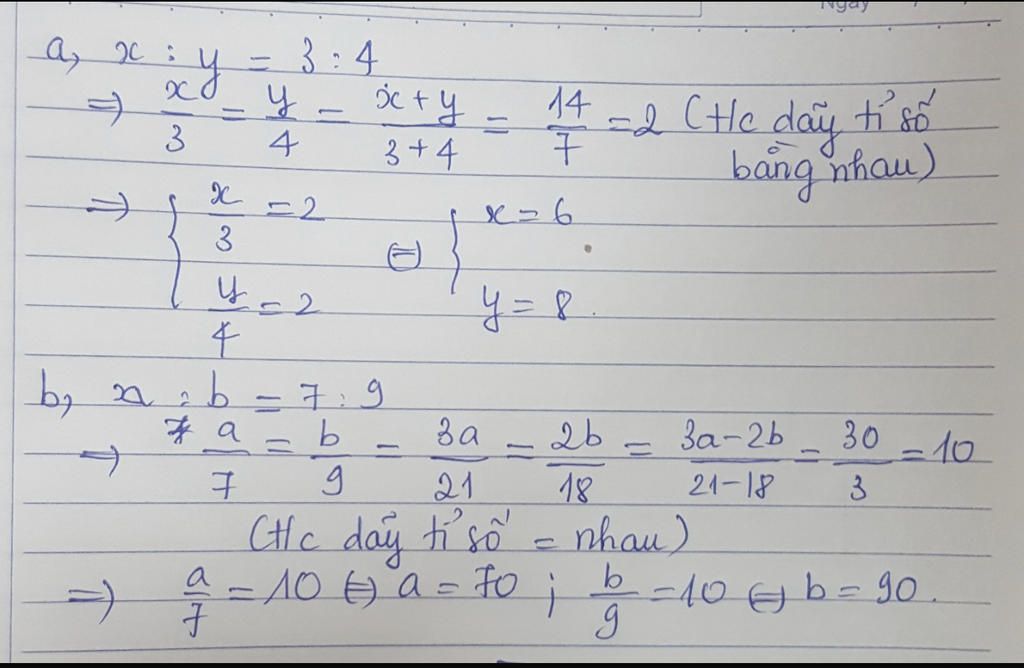 Ngày
a, x : y = 3 : 4
=> x/3 = y/4 = x+y/3+4 = 14/7 = 2 (t/c dãy tỉ số
bằng nhau)
=> { x/3 = 2 y/4 = 2 <=> { x = 6 y = 8.
b, a : b = 7 : 9
=> a/7 = b/9 = 3a/21 = 2b/18 = 3a-2b/21-18 = 30/3 = 10
(t/c dãy tỉ số = nhau)
=> a/7 = 10 <=> a = 70 ; b/9 = 10 <=> b = 90.